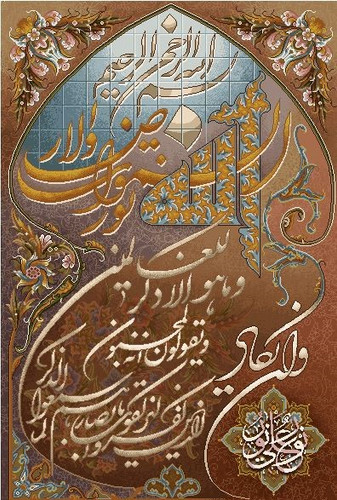 بسم الله الرحمن الرحیم
الله نور السموات والارض
وان یکاد
الذین کفروا لیزلقونک بابصارهم
لما سمعوا الذکر
ویقولون انه لمجنون
وما هو الا ذکر
للعالمین
نور علی نور